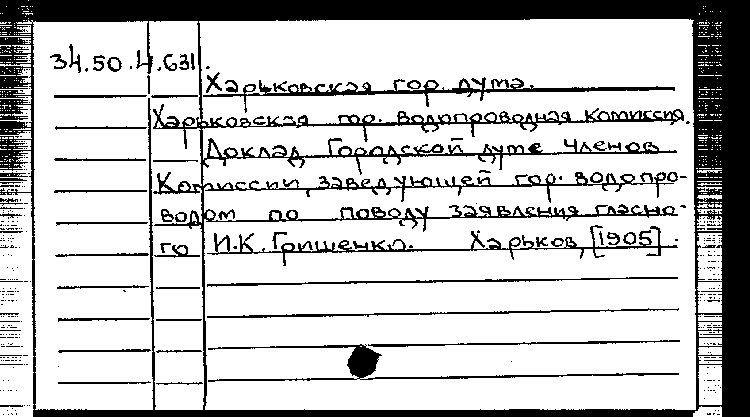 34.50.4.631.
Харьковская гор. дума.
Харьковская гор. водопроводная комиссия.
Доклад Городской думе членов
Комиссии, заведующей гор. водопро-
водом по поводу заявления гласно-
го И.К. Грищенко. Харьков, [1905].